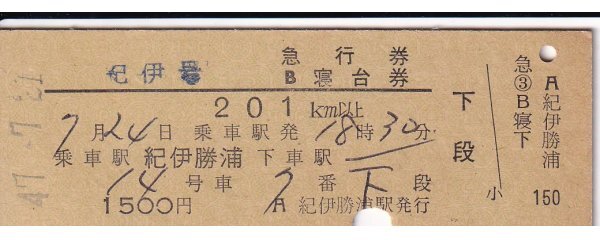 急行券
紀伊号 B寝台券
201km以上
7月24日 乗車駅発 18時30分
乗車駅 紀伊勝浦 下車駅
14号車 7番下段
1500円 A 紀伊勝浦駅発行
下段
小
A紀伊勝浦
急③B寝下
150
47.-7.21